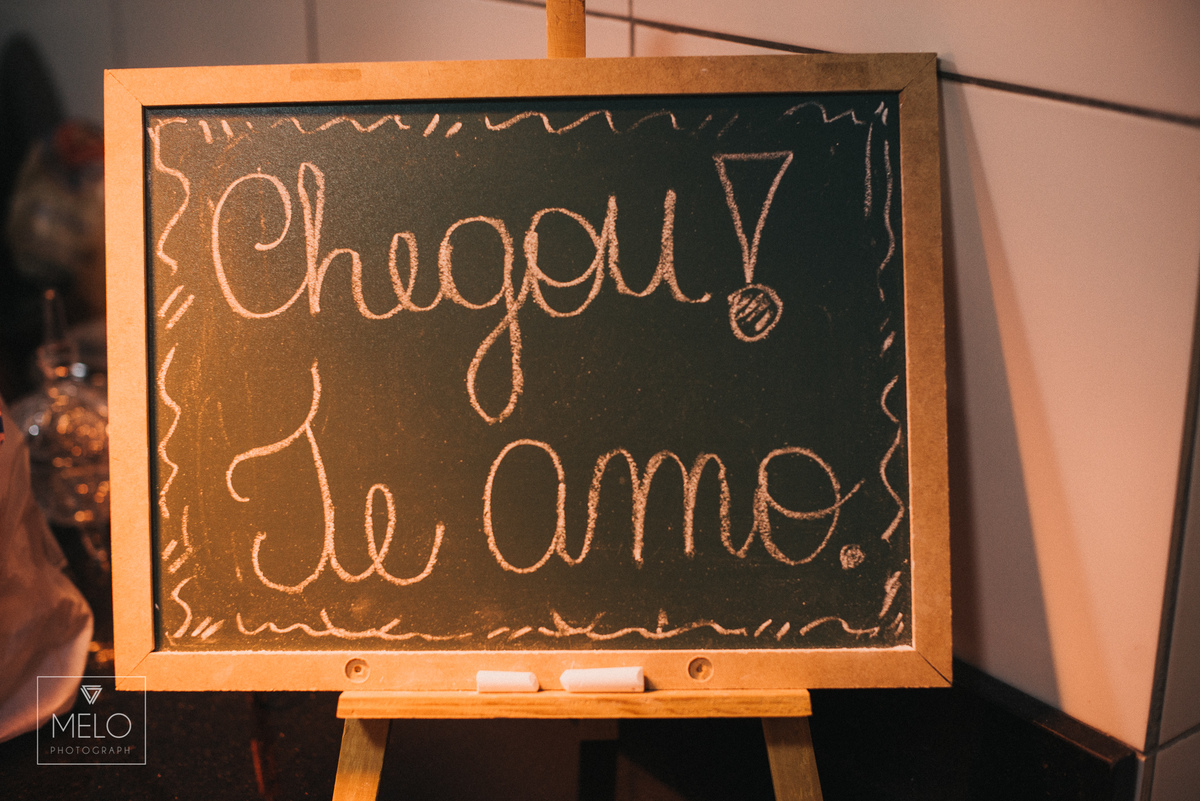 Chegou!
Te amo.
MELO
PHOTOGRAPH